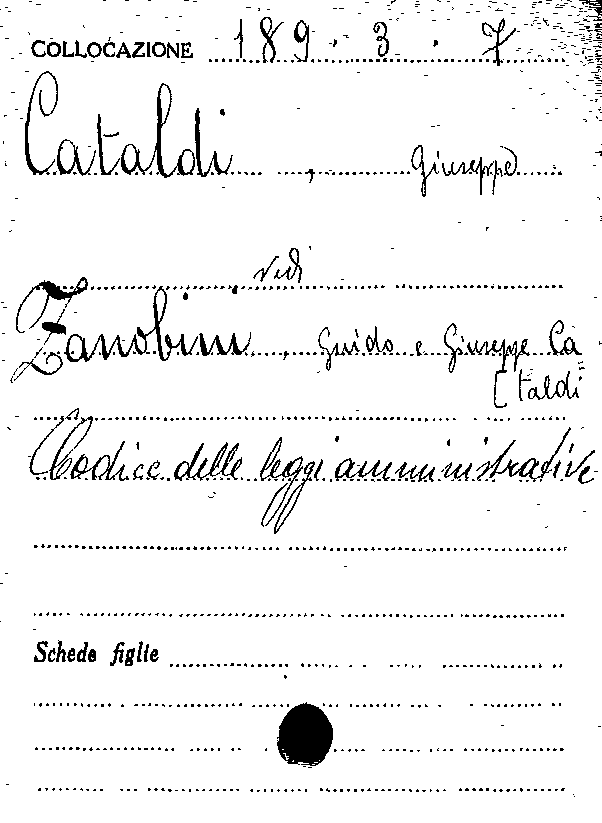 COLLOCAZIONE 189.3.7
Cataldi, Giuseppe
vedi
Zanobini, Guido e Giuseppe Ca
[taldi
Codice delle leggi amministrative
Schede figlie